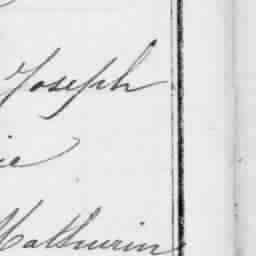 Joseph
ie
Mathurin